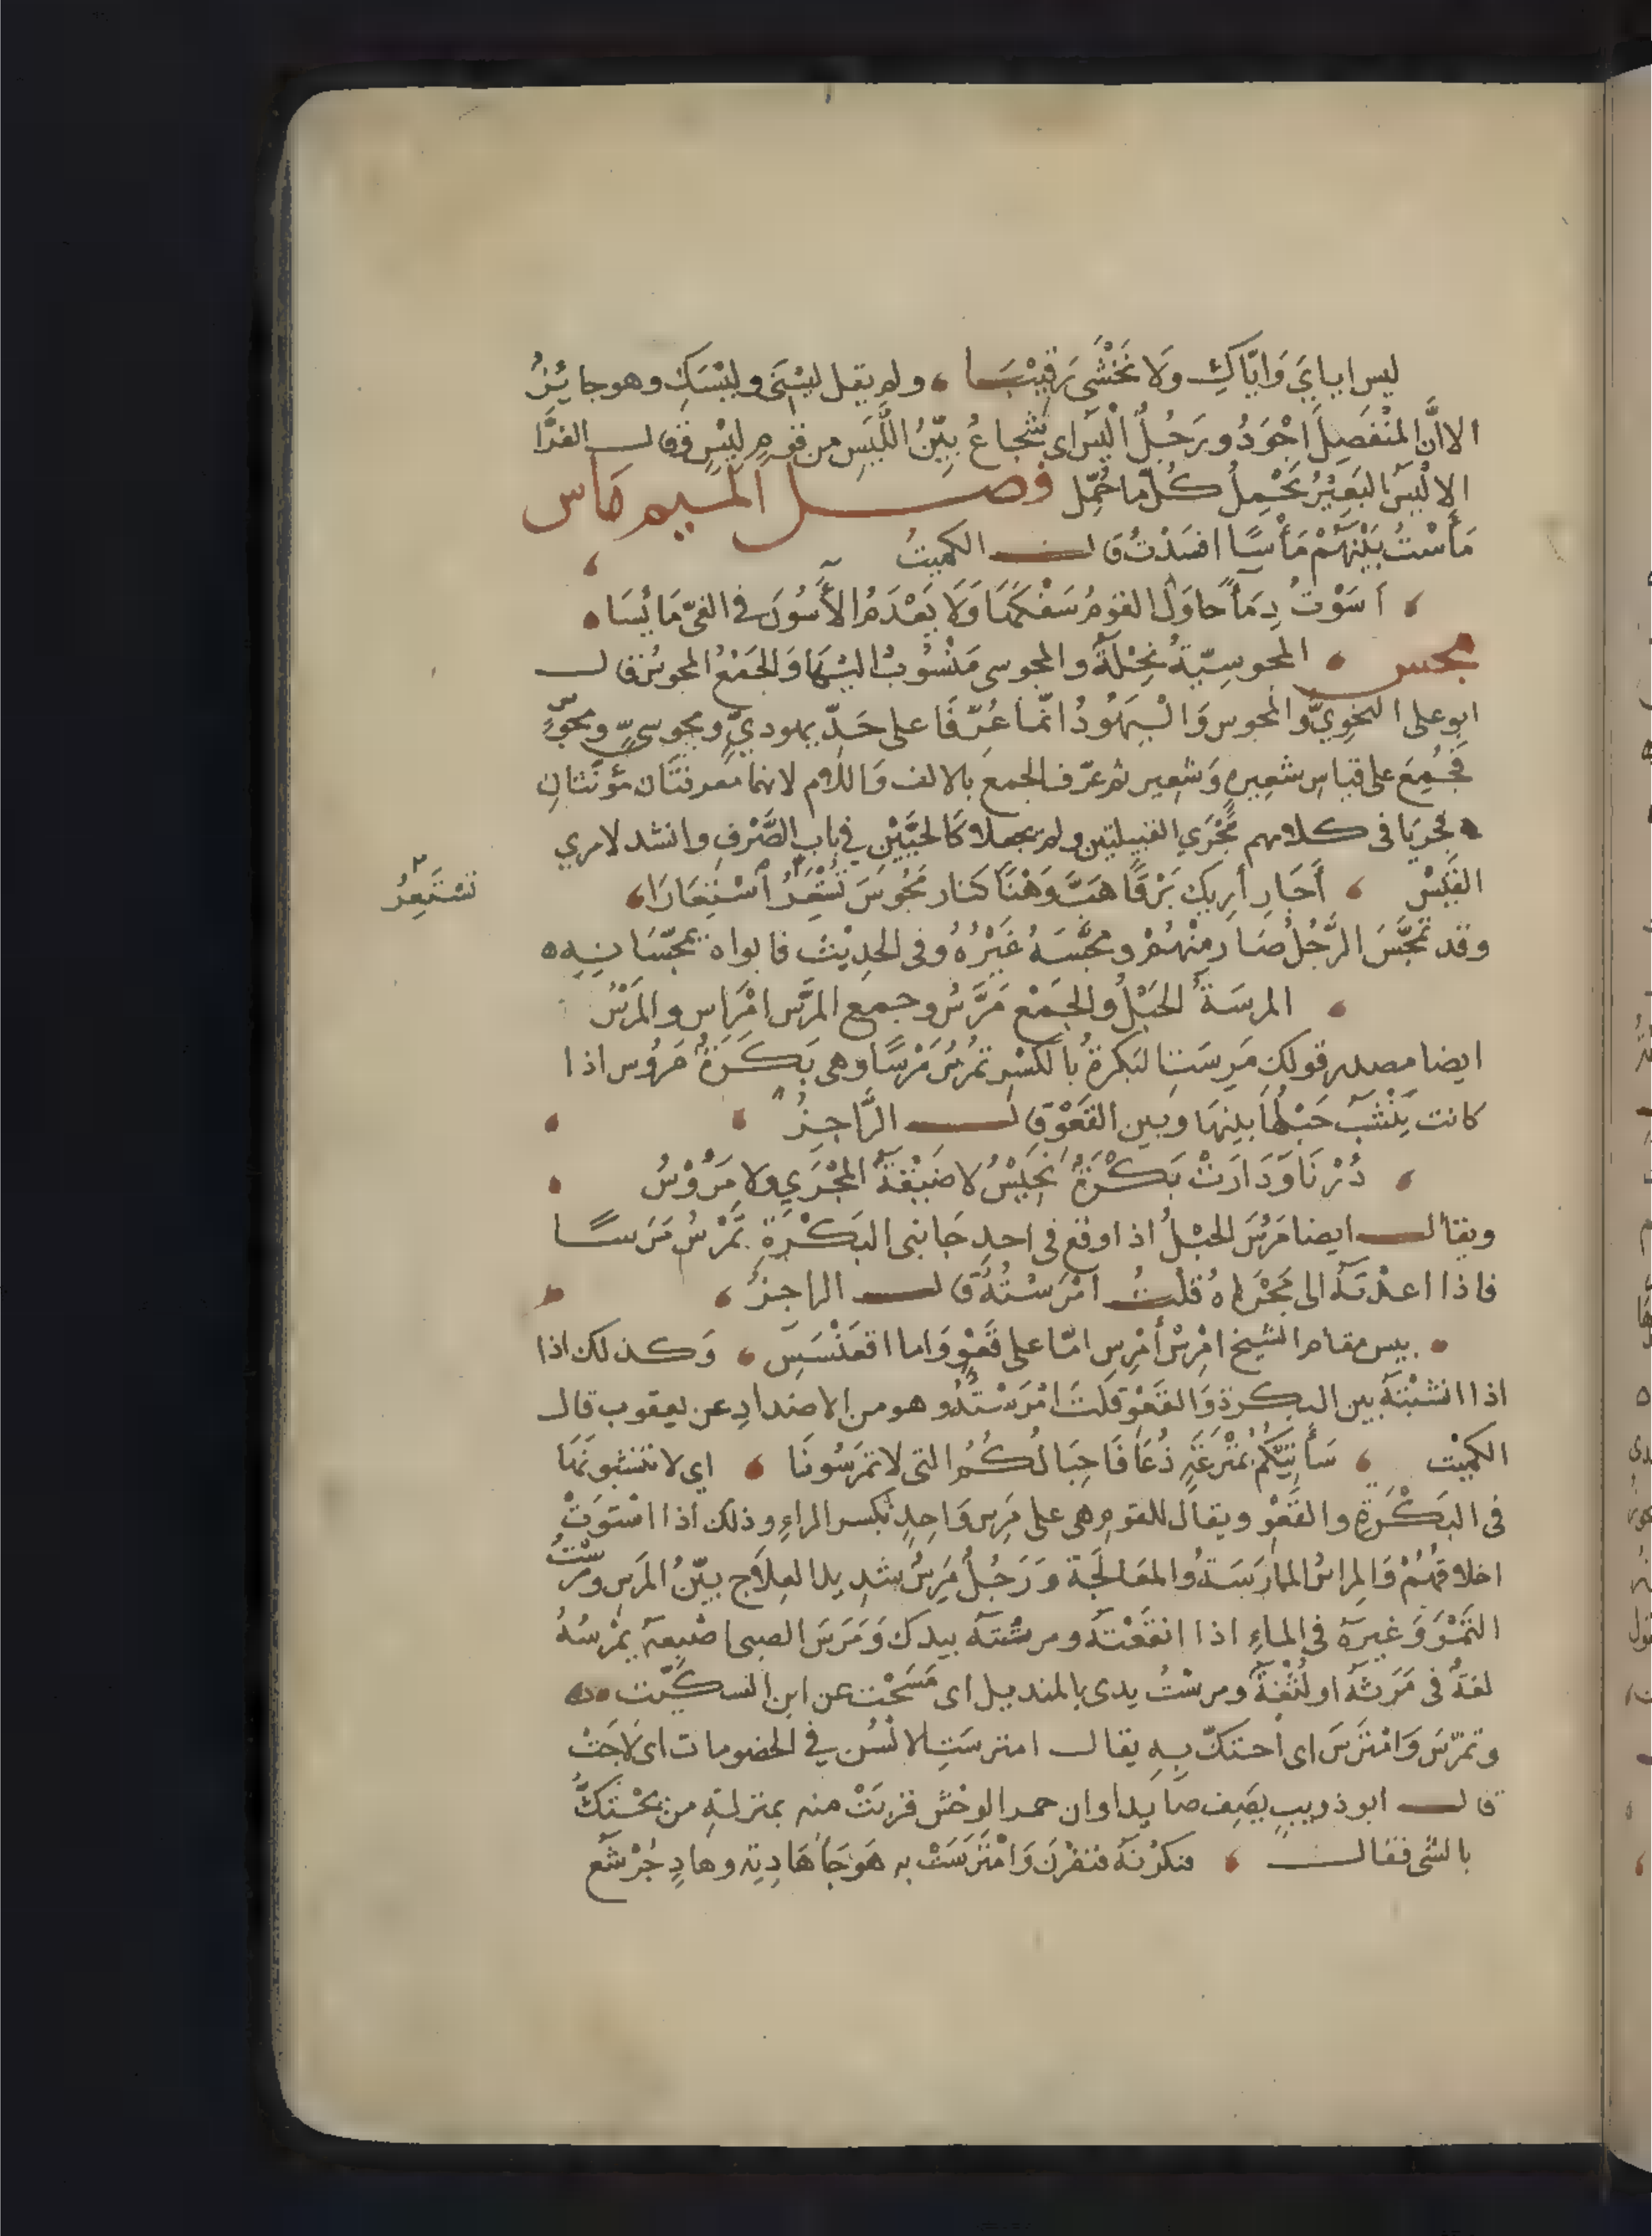 ليس اياي وَايّاكِ ولَا نَخْشَى رَقِيبَا ولم يقل ليسنى وليسك وهو جائزُ
الا انَّ المنْفَصِلَ اجْوَدُ ورَجُلٌ اَلْيَسُ اى شجاعٌ بيّنُ اللَّيَسِ من قوم لِيْسٍ وقال الفرَّا
الاليس البَعِيْرُ يَحْمِلُ كُلّ ما حُمِّل فصل الميم ماس
مَأَسْتُ بَيْنَهُمْ مَأْسًا افسَدْتُ قال الكميتُ
أَسَوْتُ دِمَاً حاوَلَ القومُ سَفْكَهَا وَلَا يَعْدَمُ الأَسُونَ في الغيّ مَائسَا
مجس المجوسِيّةُ نِحْلَةٌ والمجوسى مَنْسُوبٌ اليْهَا وَالجَمْعُ المجوسُ قال
ابو على النحْوِيّ والمجوس وَاليَهُودُ انّمَا عُرّفَا على حَدّ يهوديٍّ ويهودٍ ومجوسىٍّ ومجوسٍ
فجُمِعَ على قياس شعِيرهٍ وَشعِيرٍ ثم عرّف الجمع بالالف وَاللام لانهما معرفتَان مؤنّثتانِ
فجريَا فى كلامهم مَجْرَي القبيلتين ولم يجعلا كَالحيَّيْنِ في باب الصَّرْفِ وانشد لامري
القَيْسْ أَحَارِ أُرِيكَ بَرْقًا هَبَّ وَهْنًا كنار مَجُوسَ تَسْتَعِرُ اسْتِعَارَا
تسْتَعِرُ
وقد تمجَّسَ الرَّجُلُ صَارَ مِنْهُمْ ومجَّسَهُ غَيْرُهُ وفى الحدِيْث فابواه يمجّسَانِهِ
المرسَةُ الحَبْلُ والجَمْع مَرَسُ وجمع المَرَس امْرَاس والمَرَسُ
ايضا مصدر قولك مَرِسَتِ البَكرةُ بالكسْر تمْرَسُ مَرَسًا وهى بَكَرَةٌ مَرُوس اذا
كانت يَنْشَبُ حَبْلُهَا بينهَا وَبين القَعْوِ قال الرَّاجِزُ
دُرْنَا وَدَارَتْ بَكْرَةٌ نَخِيْسُ لا ضَيْقَةُ المجْرَي ولا مَرُوْسُ
ويقال ايضا مَرَسَ الحبْلُ اذا وقع فى احدِ جَانبى البَكْرَةِ يَمْرُسُ مَرَسًا
فاذا اعدْتَهُ الى مَجْرَاهُ قلتُ امْرَسْتُهُ قال الراجزُ
بيس مقام الشيخ امْرِسْ أَمْرِسِ امّا على قَعْوٍ وَاما اقعَنْسَسِ وَكذلك اذا
اذا انشبْتَهُ بين البكرة وَالقَعْوِ قلتَ امْرَسْتُهُ وهو من الاضدادِ عن يعقوب قال
الكميْت سَأَتيكمُ بمُتْرَعَةٍ ذُعَافًا حِبَالكُمُ التى لا تمْرِسُونَا اى لا تنشبونَهَا
فى البَكْرَةِ والقَعْوِ ويقال للقوم هى على مَرِسٍ وَاحِدٍ بكسر الراءِ وذلك اذا اسْتَوَتْ
اخلاقُهُمْ وَالمِراسُ الممَارَسَةُ والمعَالَجَة وَرَجُلٌ مَرِسٌ شدِيد العِلَاجِ بيّنُ المَرَسِ ومَرَسْتُ
التَمْرَ وَغيرَهُ في الماءِ اذا انقَعْتَهُ ومرسْتَهُ بيدك وَمَرَسَ الصبى اصْبِعَهُ يمْرُسُهُ
لغةٌ فى مَرَثَهُ او لُثْغَةٌ ومرسْتُ يدى بالمنديل اى مَسَحْت عن ابن السكّيت
وتمَرَّسَ وَامْتَرَسَ اى احتَكّ بِهِ يقال امترسَتِ الالسُن في الخصومات اى لَاجَتْ
قال ابو ذويبٍ يصِف صَايدا وان حمر الوحْش قربَتْ منه بمنزلةِ من يحْتكُّ
بالشى فقال فنكرْنَهُ فنفرْنَ وَامْتَرَسَتْ به هَوْجَا هَادِيَة وهادٍ جُرْشُع